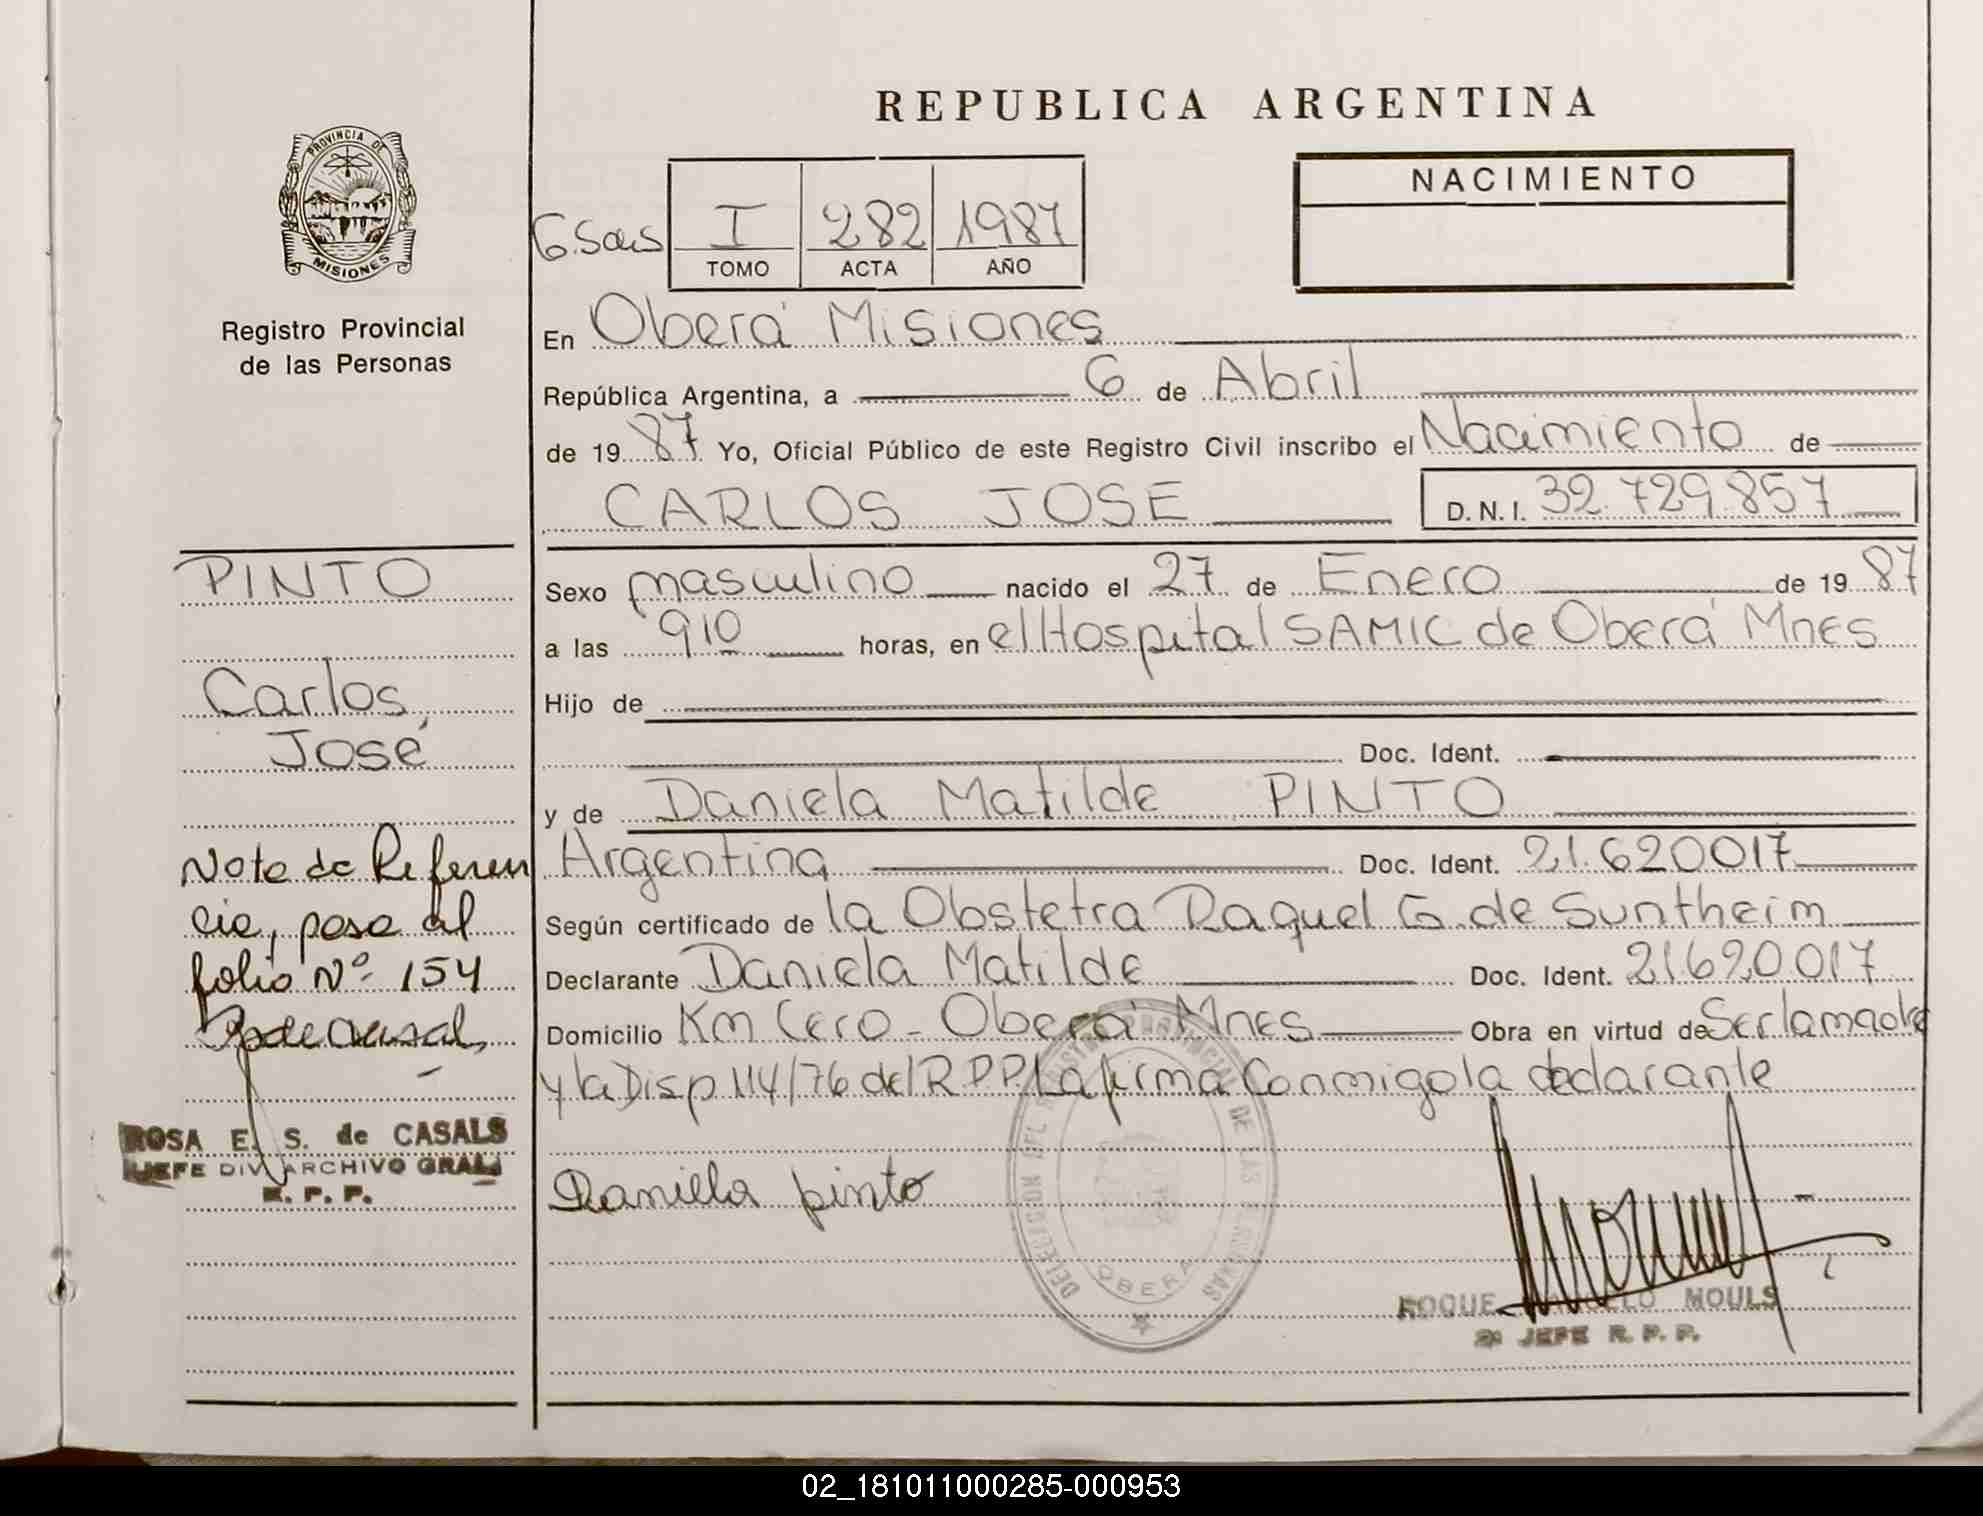 REPUBLICA ARGENTINA
PROVINCIA DE
MISIONES
Registro Provincial
de las Personas
NACIMIENTO
I 282 1987
TOMO ACTA AÑO
En Oberá Misiones
República Argentina, a 6 de Abril
de 1987 Yo, Oficial Público de este Registro Civil inscribo el Nacimiento de
CARLOS JOSE D.N.I. 32.729.857
PINTO
Carlos
José
Sexo masculino nacido el 27 de Enero de 1987
a las 910 horas, en el Hospital SAMIC de Oberá Mnes
Hijo de
Doc. Ident.
y de Daniela Matilde PINTO
Argentina Doc. Ident. 21.620017
Según certificado de la Obstetra Raquel G. de Suntheim
Declarante Daniela Matilde Doc. Ident. 21620017
Domicilio Km Cero - Oberá Mnes Obra en virtud de Ser la madre
y la Disp 114/76 del R.P.P. La firma Conmigo la declarante
Nota de Referen
cia, pasa al
folio Nº 154
ROSA E. S. de CASALS
JEFE DIV. ARCHIVO GRAL.
R. P. P.
Daniela pinto
DELEGACION DEL REGISTRO PROVINCIAL DE LAS PERSONAS
OBERA
ROQUE MOULS
JEFE R. P. P.
02_181011000285-000953